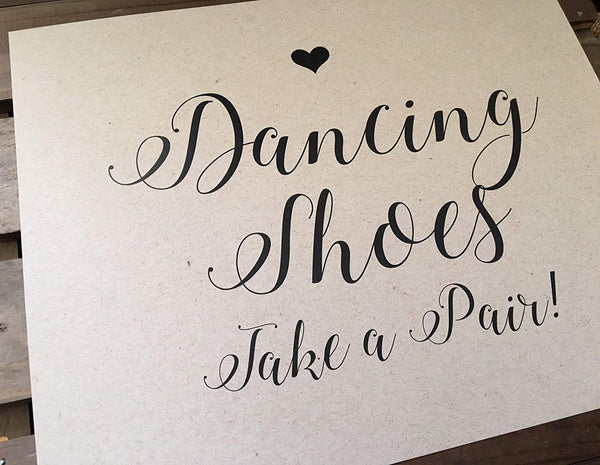 Dancing
Shoes
Take a Pair!